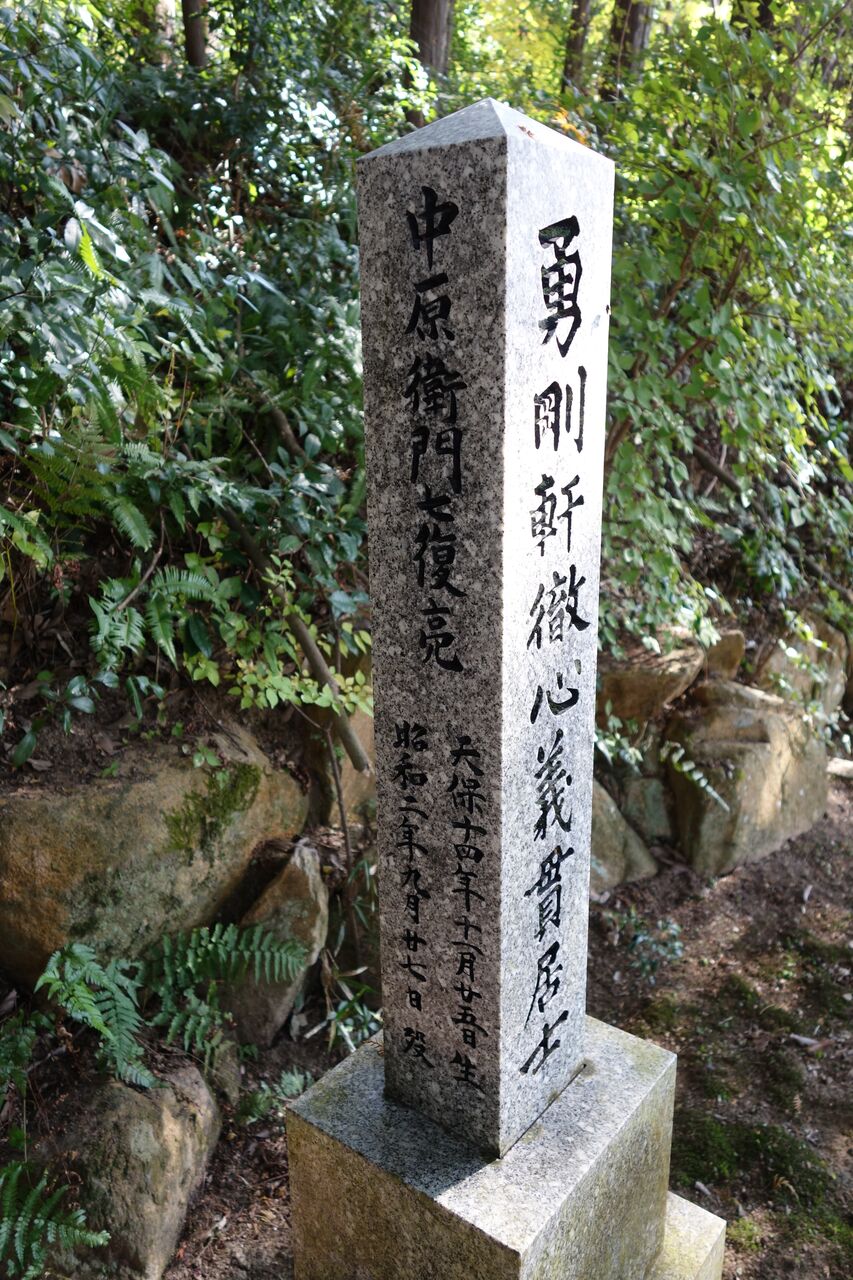 勇剛軒徹心義貫居士
中原衛門七復亮
天保十四年十一月廿五日生
昭和二年九月廿七日歿